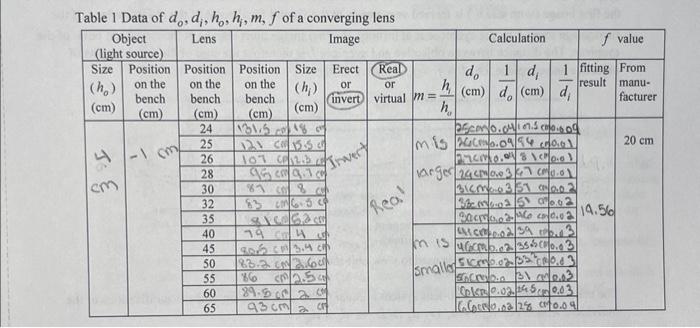 Table 1 Data of do, di, ho, hi, m, f of a converging lens
Object (light source) Lens Image Calculation f value
Size (ho) (cm) Position on the bench (cm) Position on the bench (cm) Position on the bench (cm) Size (hi) (cm) Erect or invert Real or virtual m = hi/ho do (cm) 1/do di (cm) 1/di fitting result From manufacturer
4 cm -1 cm Invert Real m is larger m is smaller 19.56 20 cm
24 131.5 cm 18 cm 25cm 0.04 107.5 cm 0.009
25 121 cm 15.5 cm 0.04 96 cm 0.01
26 107 cm 12.3 cm 27cm 81 cm 0.01
28 95 cm 9.7 cm 0.03 67 cm 0.01
30 87 cm 8 cm 31cm 0.03 57 cm 0.02
32 83 cm 6.5 cm 51 cm 0.02
35 81 cm 5.2 cm 0.02 46 cm 0.02
40 79 cm 4 cm 41cm 0.02 39 cm 0.03
45 80.5 cm 3.4 cm 46cm 0.02 35.5 cm 0.03
50 83.2 cm 2.6 cm 51cm 0.02 0.03
55 86 cm 2.5 cm 31 cm 0.03
60 89.5 cm 2 cm 0.02 0.03
65 93 cm 2 cm 0.02 28 cm 0.04